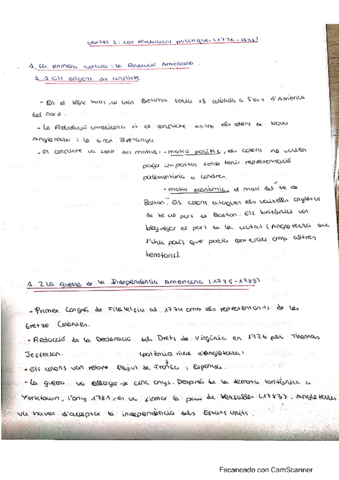 UNITAT 2: Les revolucions polítiques (1776-1848)
1. La primera ruptura: la Revolució Americana
1.1 Els orígens del conflicte
- En el segle XVIII, la Gran Bretanya tenia 13 colònies a l'est d'Amèrica
del nord.
- La Revolució americana és el conflicte entre els colons de Nova
Anglaterra i la Gran Bretanya.
- El conflicte va tenir dos motius: - motiu polític, els colons no volien
pagar impostos sense tenir representació
parlamentària a Londres.
- motiu econòmic, el motí del "te de
Boston". Els colons ataquen els vaixells anglesos
de te al port de Boston. Els britànics van
bloquejar el port de la ciutat (Anglaterra era
l'únic país que podia comerciar amb altres
territoris).
1.2 La guerra de la Independència Americana (1775-1783)
- Primer Congrés de Filadèlfia al 1774 amb els representants de les
tretze Colònies.
- Redacció de la Declaració dels Drets de Virgínia en 1976 per Thomas
Jefferson. (potència rival d'Anglaterra)
- Els colons van rebre l'ajut de França i Espanya.
- La guerra va allargar-se cinc anys. Després de la derrota britànica a
Yorktown, l'any 1781, es va firmar la pau de Versalles (1783), Anglaterra
va haver d'acceptar la independència dels Estats Units.
Escaneado con CamScanner